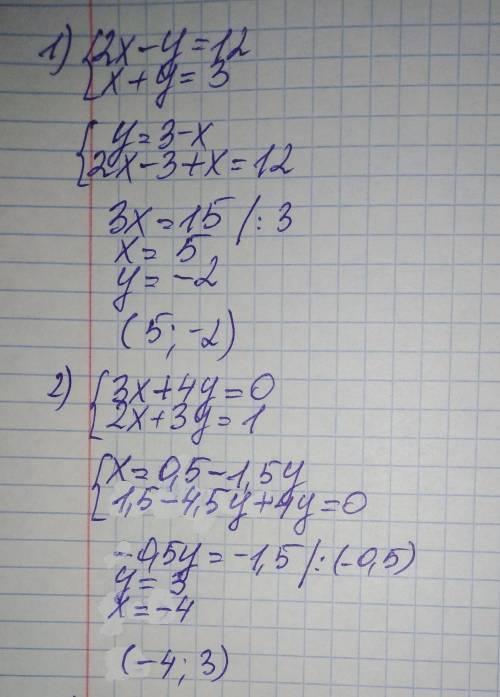 1) {2x-y=12
x+y=3
{y=3-x
2x-3+x=12
3x=15 /:3
x=5
y=-2
(5; -2)
2) {3x+4y=0
2x+3y=1
{x=0,5-1,5y
1,5-4,5y+4y=0
-0,5y=-1,5 /:(-0,5)
y=3
x=-4
(-4; 3)